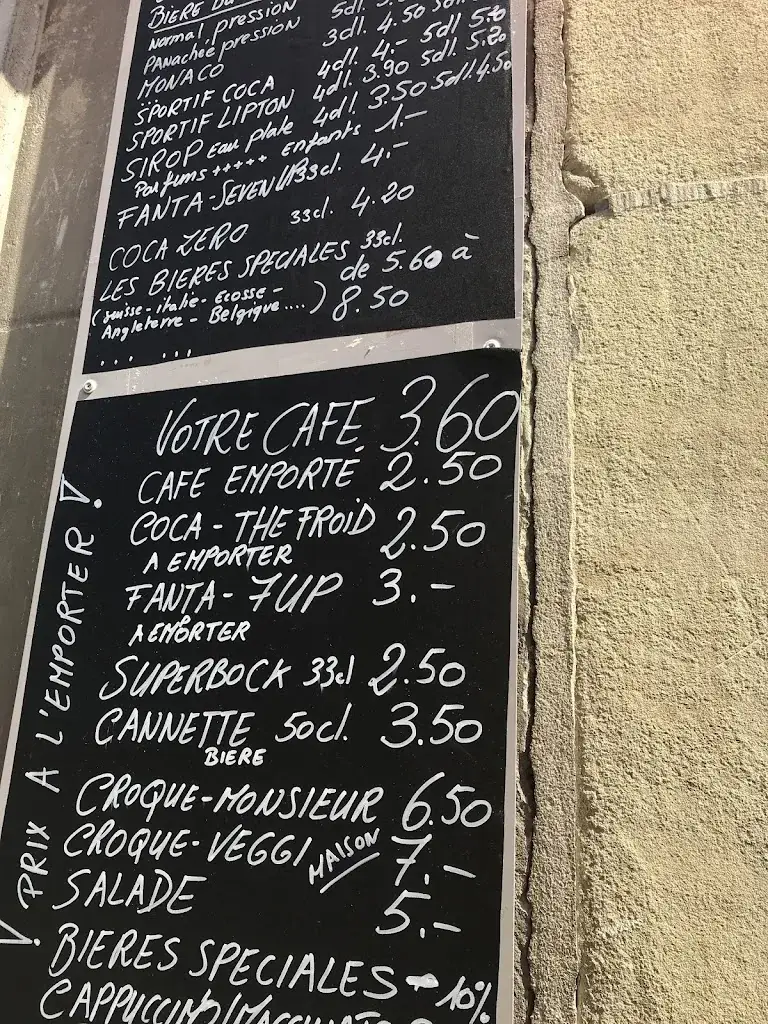 BIERE
Normal pression 5dl.
Panachée pression 3dl. 4.50 5dl
MONACO 4dl. 4.- 5dl 5.20
SPORTIF COCA 4dl. 3.90 5dl. 5.20
SPORTIF LIPTON 4dl. 3.50 5dl. 4.50
SIROP Eau plate
Parfums +++++ enfants 1.-
FANTA-SEVEN UP 33cl. 4.-
COCA ZERO 33cl. 4.20
LES BIERES SPECIALES 33cl.
(Suisse - italie - Ecosse - de 5.60 à
Angleterre - Belgique....) 8.50
... ...
VOTRE CAFE 3.60
CAFE EMPORTÉ 2.50
COCA - THE FROID 2.50
A EMPORTER
FANTA - 7UP 3.-
A EMPORTER
SUPERBOCK 33cl 2.50
CANNETTE 50cl. 3.50
BIERE
CROQUE-MONSIEUR 6.50
CROQUE-VEGGI MAISON 7.-
SALADE 5.-
BIERES SPECIALES - 10%
CAPPUCCINO/MACCHIATO
! PRIX A L'EMPORTER !